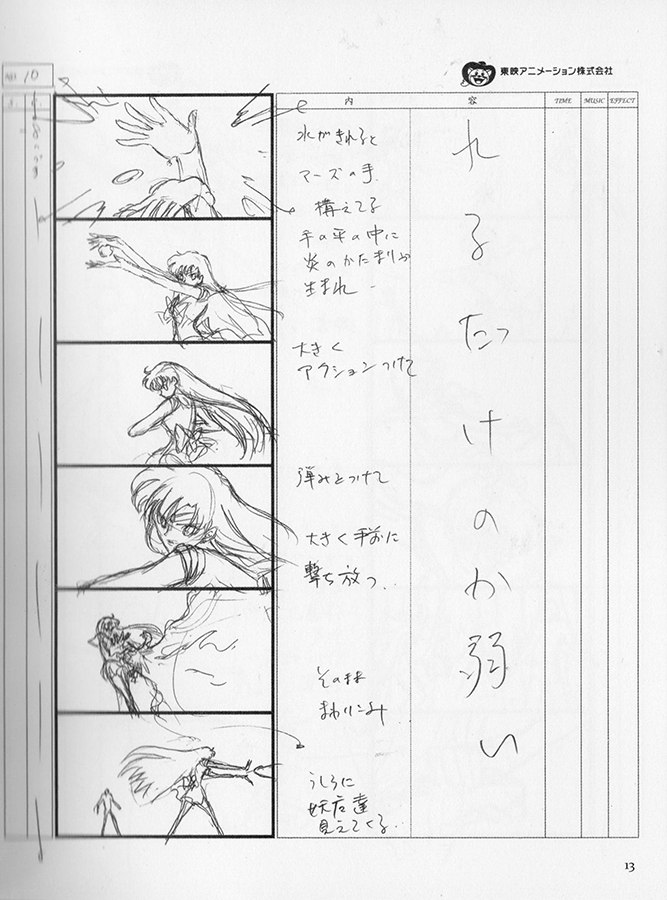 東映アニメーション株式会社
内 容 TIME MUSIC EFFECT
10
水がきれると
マーズの手
構えてる
手の平の中に
炎のかたまりが
生まれ
大きく
アクションつけて
弾みをつけて
大きく手前に
撃ち放つ
そのまま
まわりこみ
うしろに
妖店達
見えてくる
れるたったけのか弱い
13